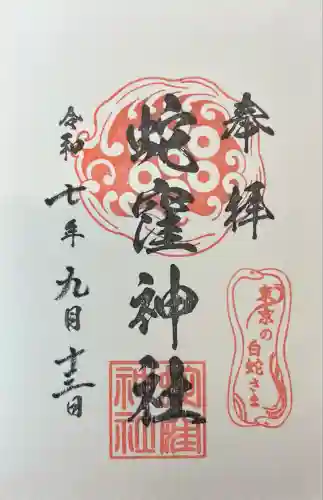 奉拝
東京の白蛇さま
蛇窪神社
蛇窪神社
令和七年九月十三日